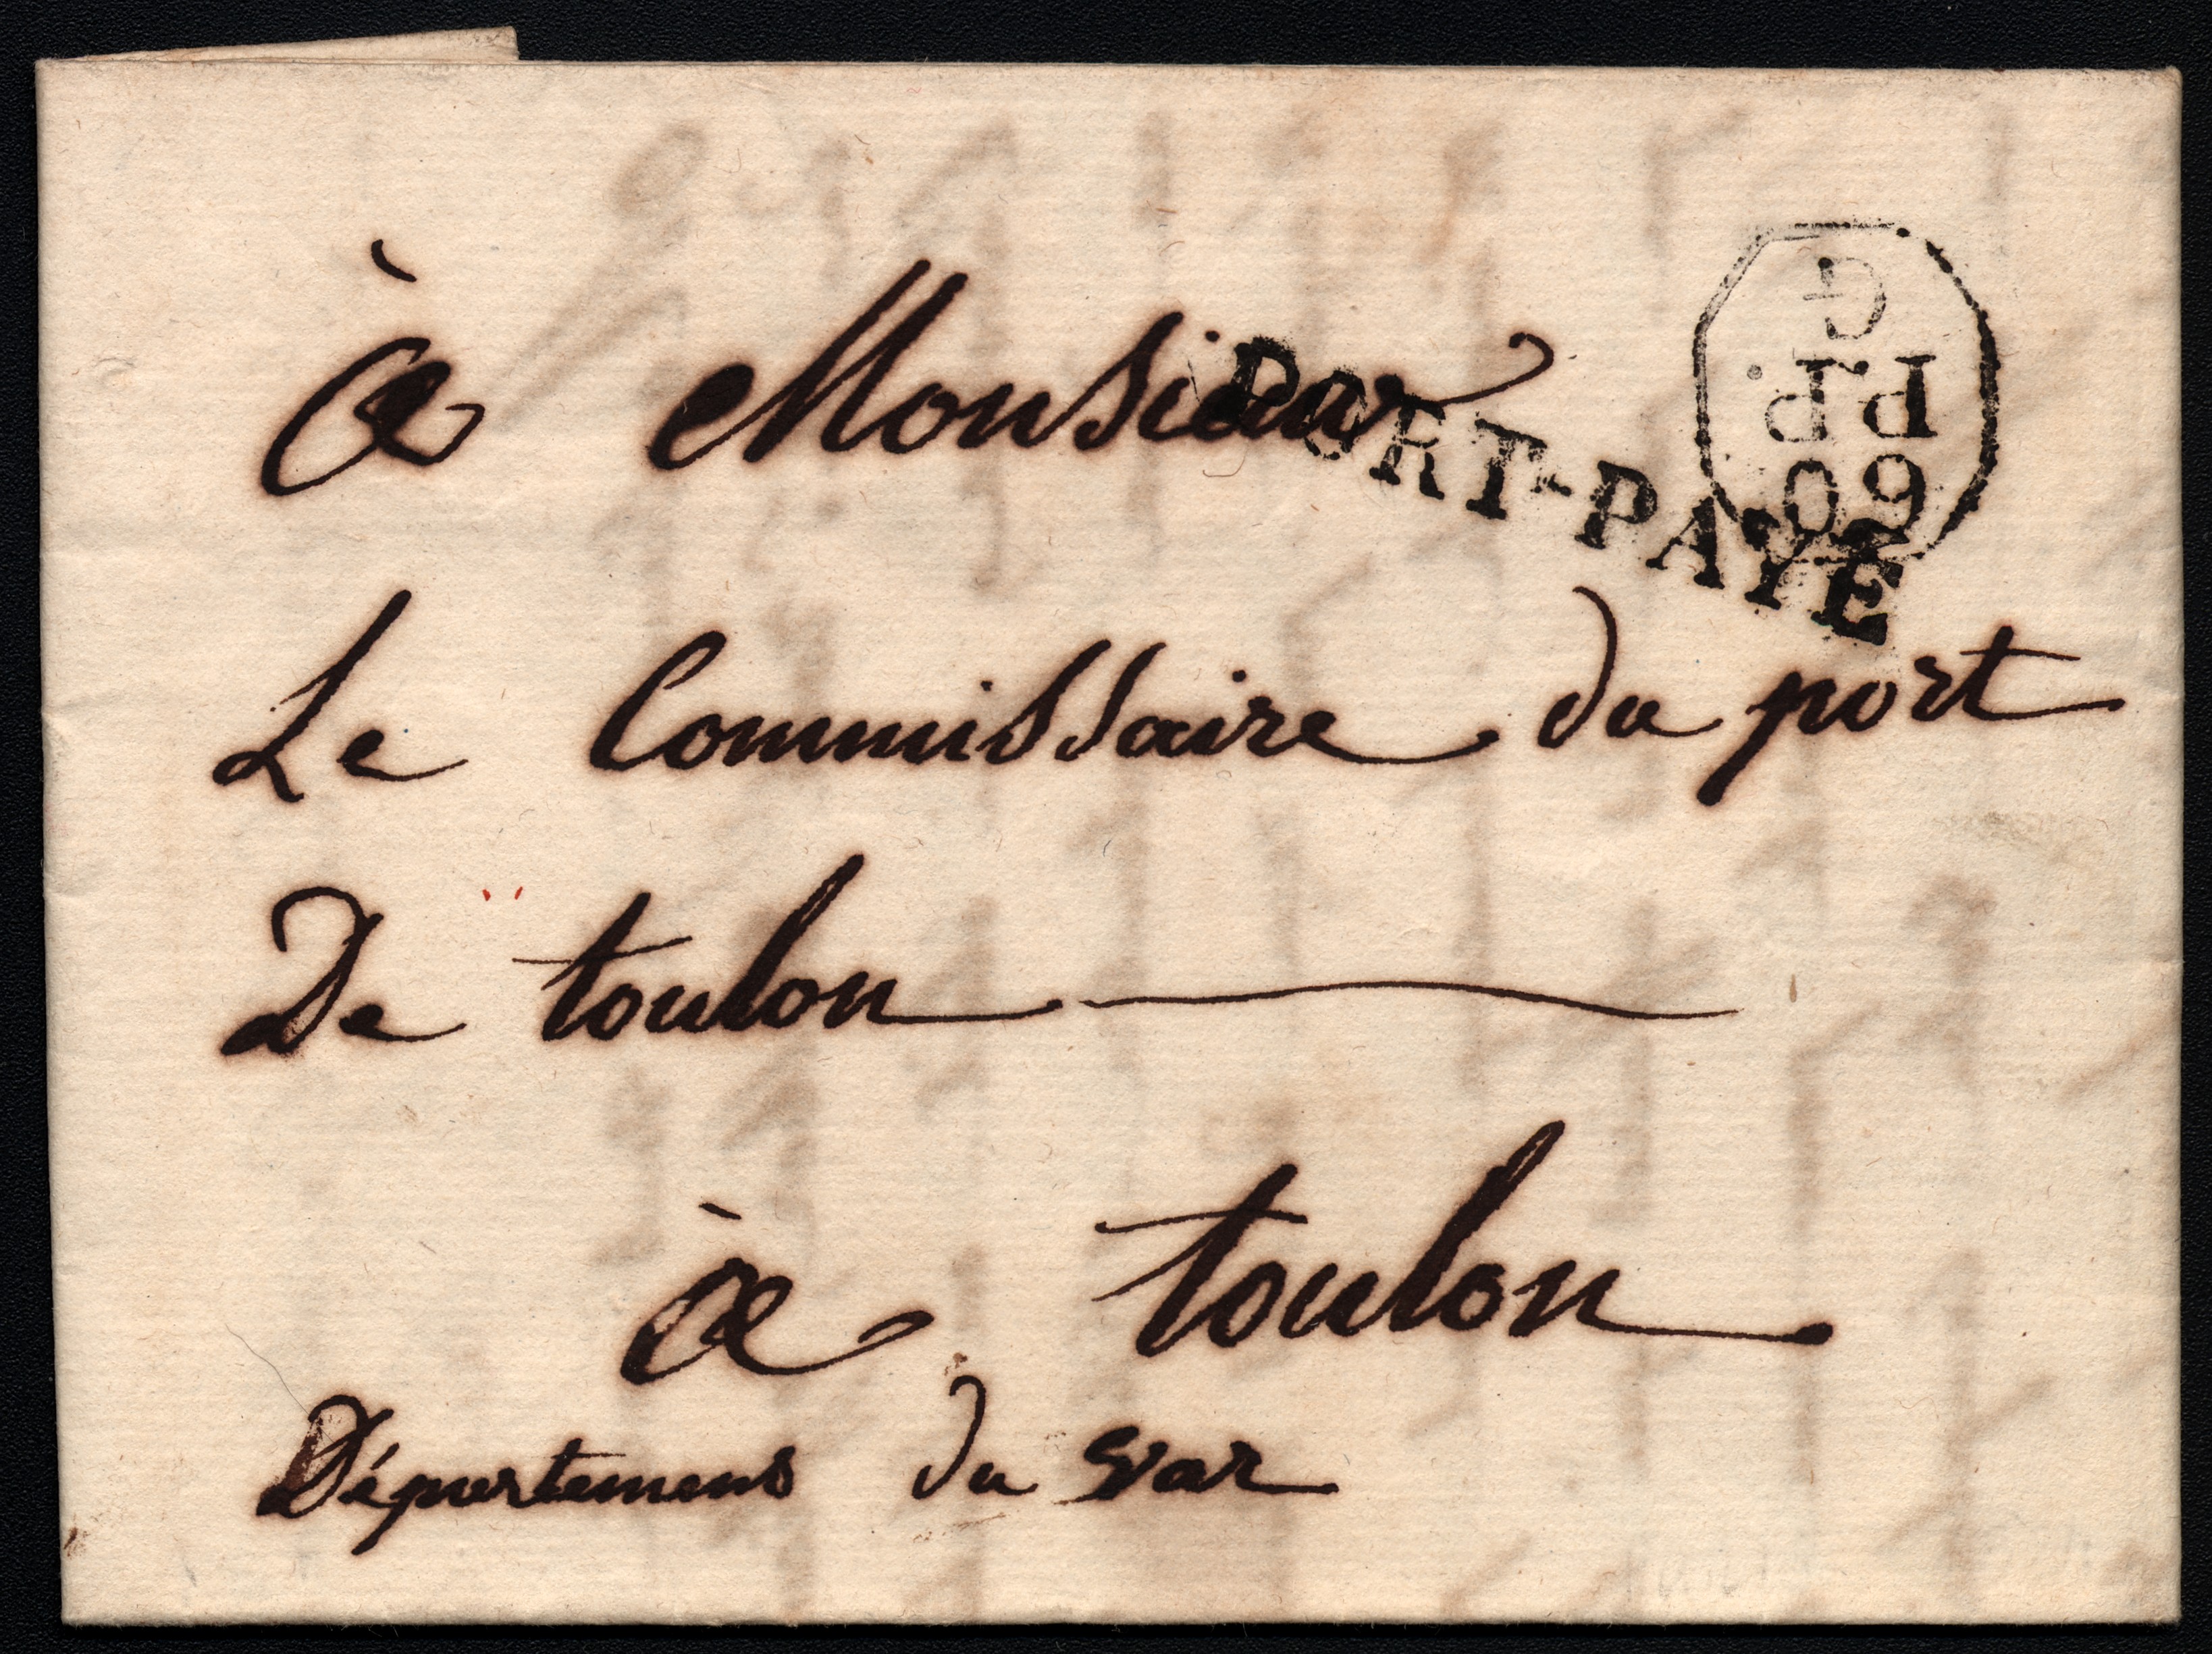 à Monsieur
PORT-PAYÉ
60
P.P.
G
Le Commissaire du port
De toulon
à toulon
Département du var